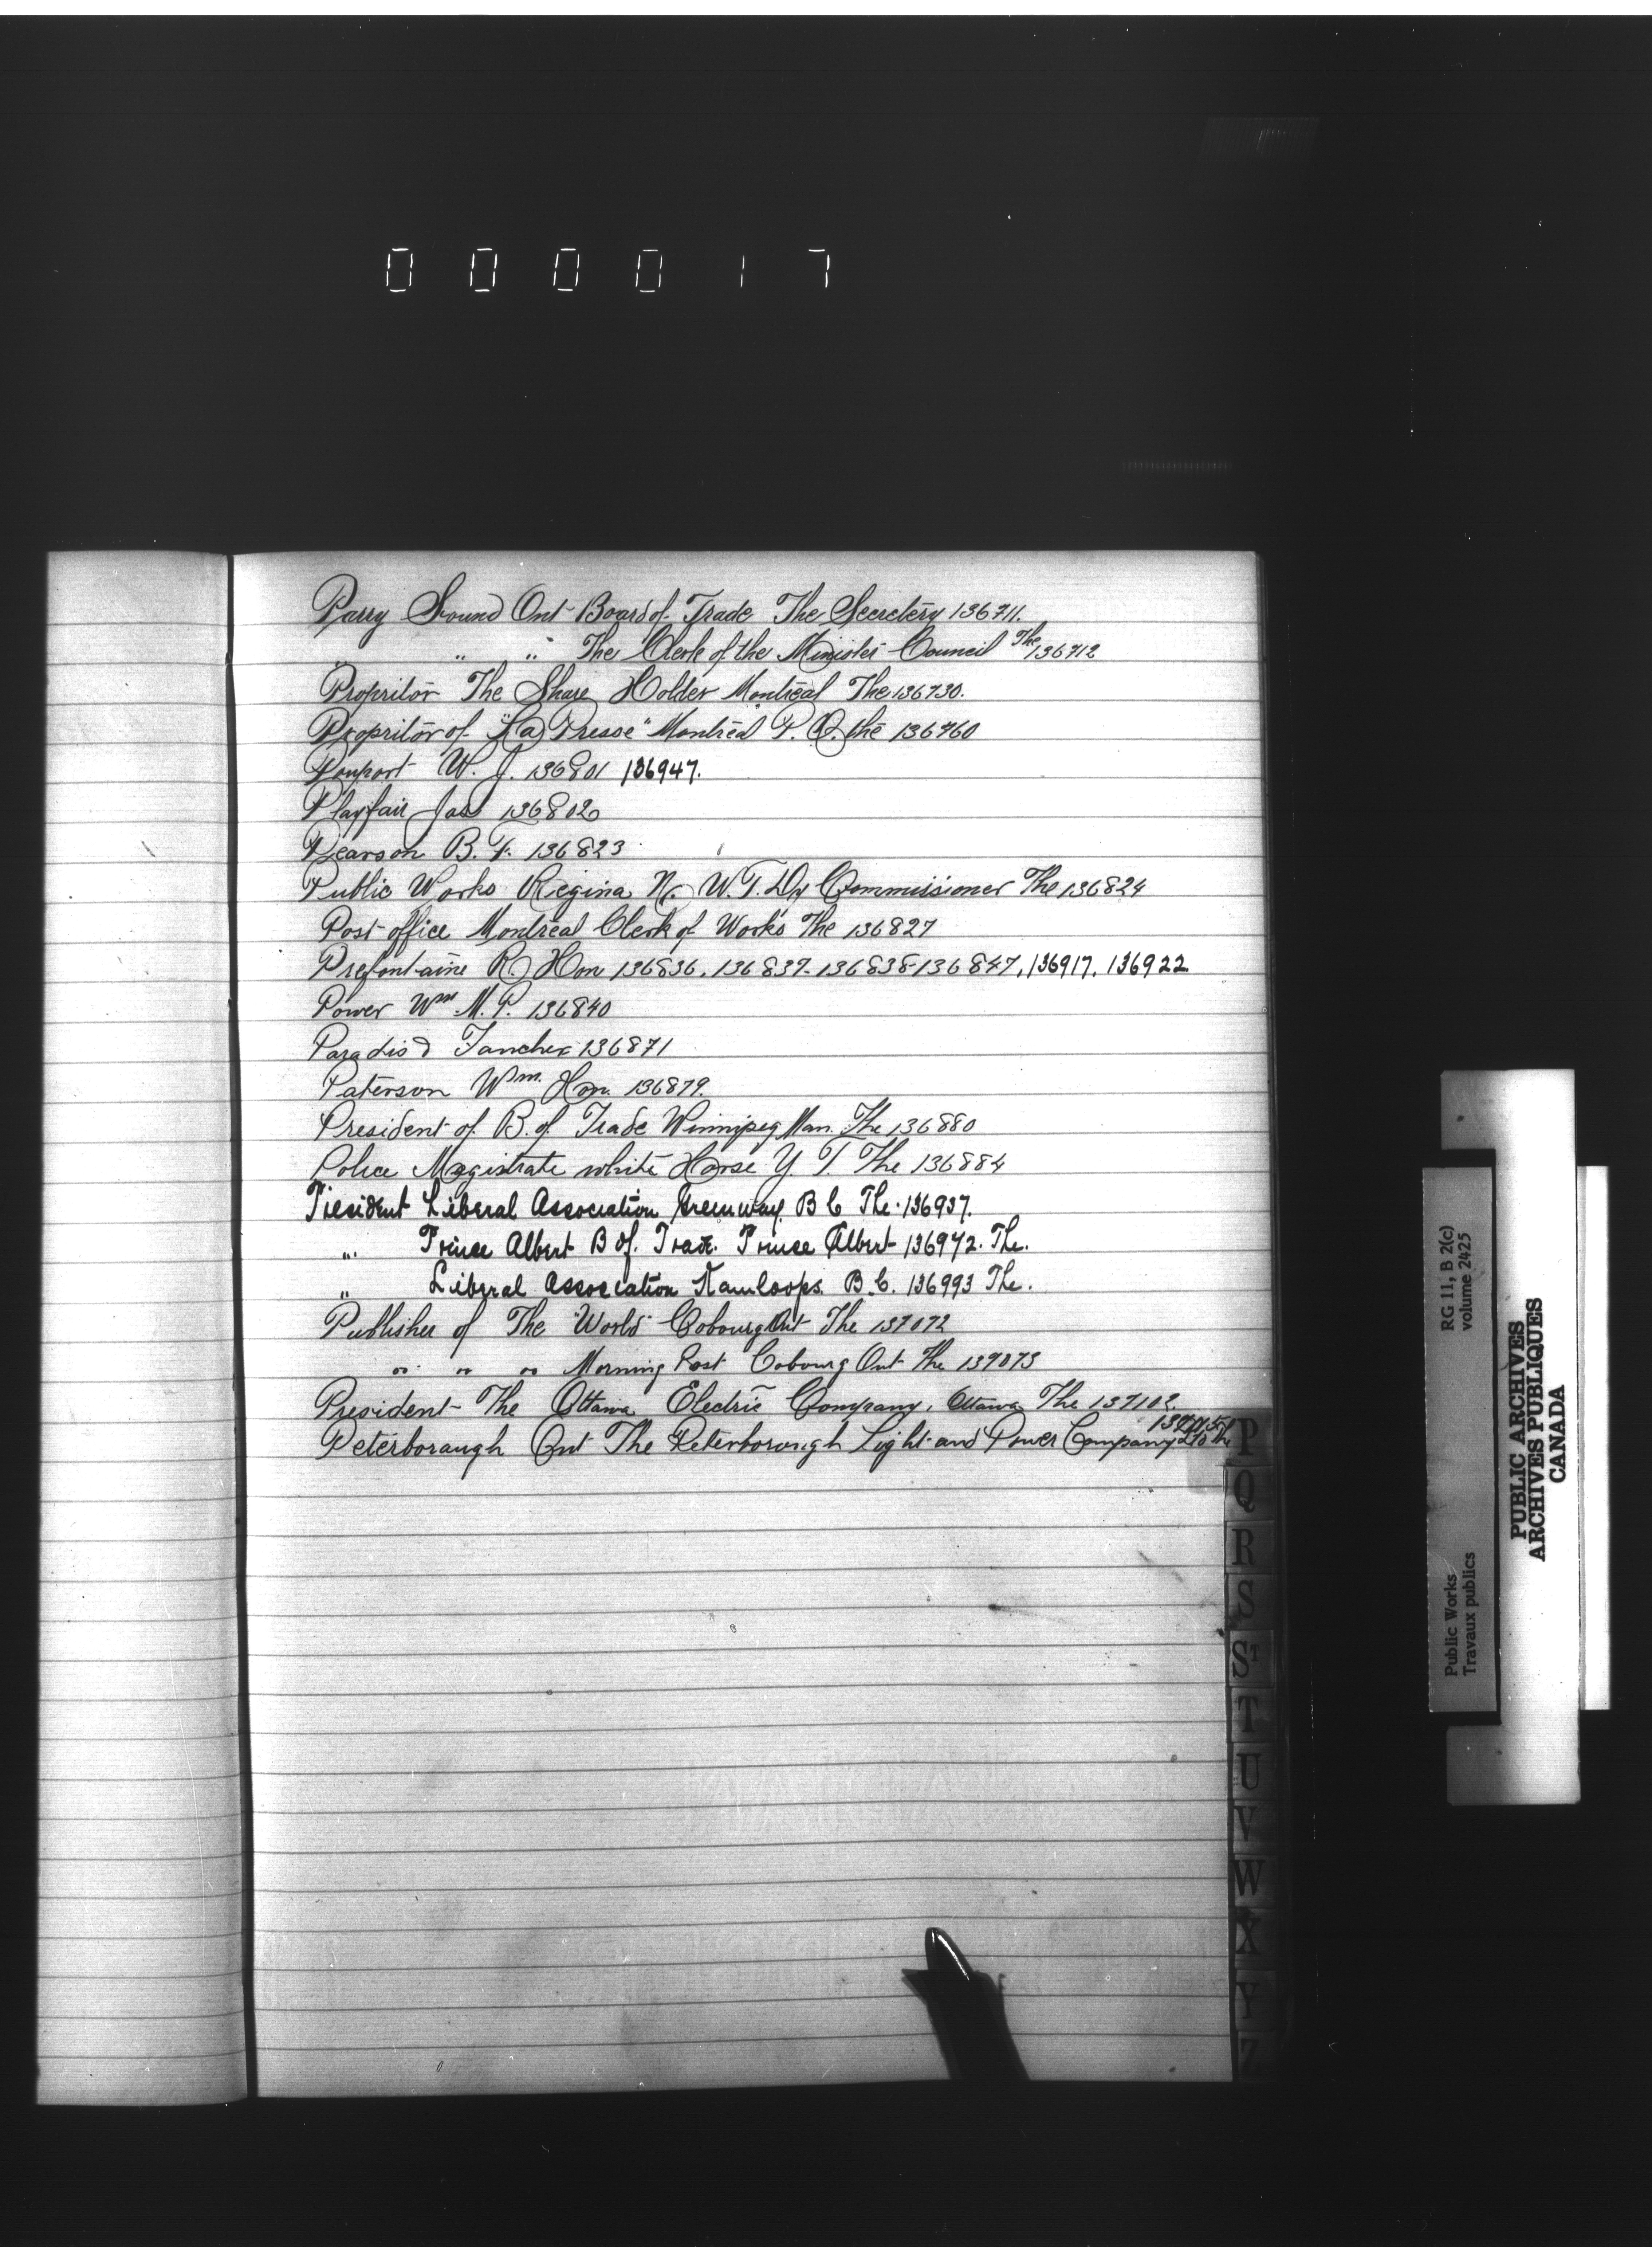 000017
Parry Sound Ont Board of Trade The Secretery 136711.
" " The Clerk of the Minister Council The 136712
Propritor The Share Holder Montreal The 136730.
Propritor of "La Presse" Montreal P. Q. the 136760
W. J. 136801 136947.
Playfair Jas 136802
Pearson B. F. 136823
Public Works Regina N. W. T. Dy Commissioner The 136824
Post office Montreal Clerk of Works The 136827
Prefontaine R. Hon 136836. 136837. 136838 136847, 136917. 136922
Power Wm M. P. 136840
Paradis 136871
Paterson Wm. Hon. 136879.
President of B. of Trade Winnipeg Man. The 136880
Police Magistrate white Horse Y. T. The 136884
President Liberal Association B C The 136937.
" Prince Albert B of. Trade. Prince Albert 136972. The.
" Liberal Association Kamloops. B. C. 136993 The.
Publisher of The "World" Cobourg Ont The 137072
" " " Morning Post Cobourg Ont The 137073
President The Ottawa Electric Company, Ottawa The 137102.
Peterboraugh Ont The Peterborough Light and Power Company
P
Q
R
S
St
T
U
V
W
X
Y
Z
Public Works
Travaux publics
RG 11, B 2(c)
volume 2425
PUBLIC ARCHIVES
ARCHIVES PUBLIQUES
CANADA